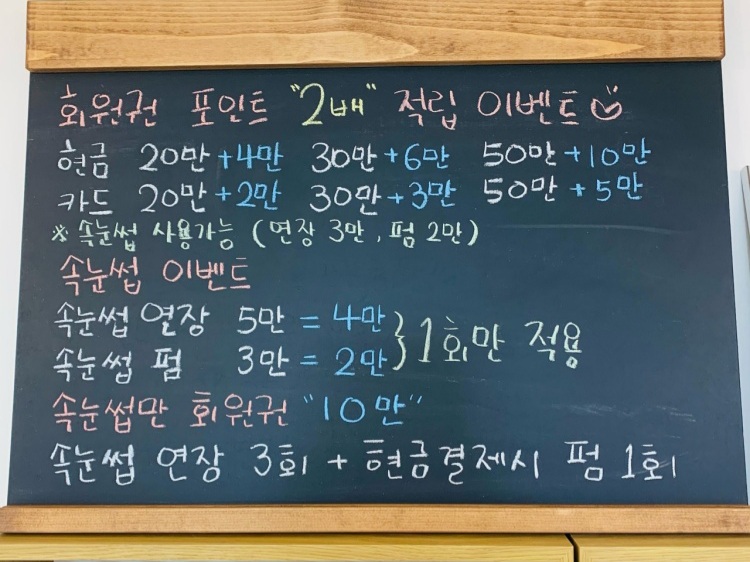 회원권 포인트 "2배" 적립 이벤트
현금 20만+4만 30만+6만 50만+10만
카드 20만+2만 30만+3만 50만+5만
※ 속눈썹 사용가능 (연장 3만, 펌 2만)
속눈썹 이벤트
속눈썹 연장 5만 = 4만
속눈썹 펌 3만 = 2만
} 1회만 적용
속눈썹만 회원권 "10만"
속눈썹 연장 3회 + 현금결제시 펌 1회